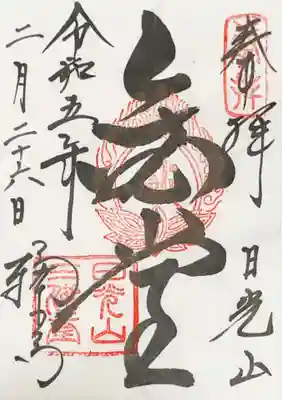 奉拝
日光山
金堂
令和五年
二月二十六日
輪王寺
日光山